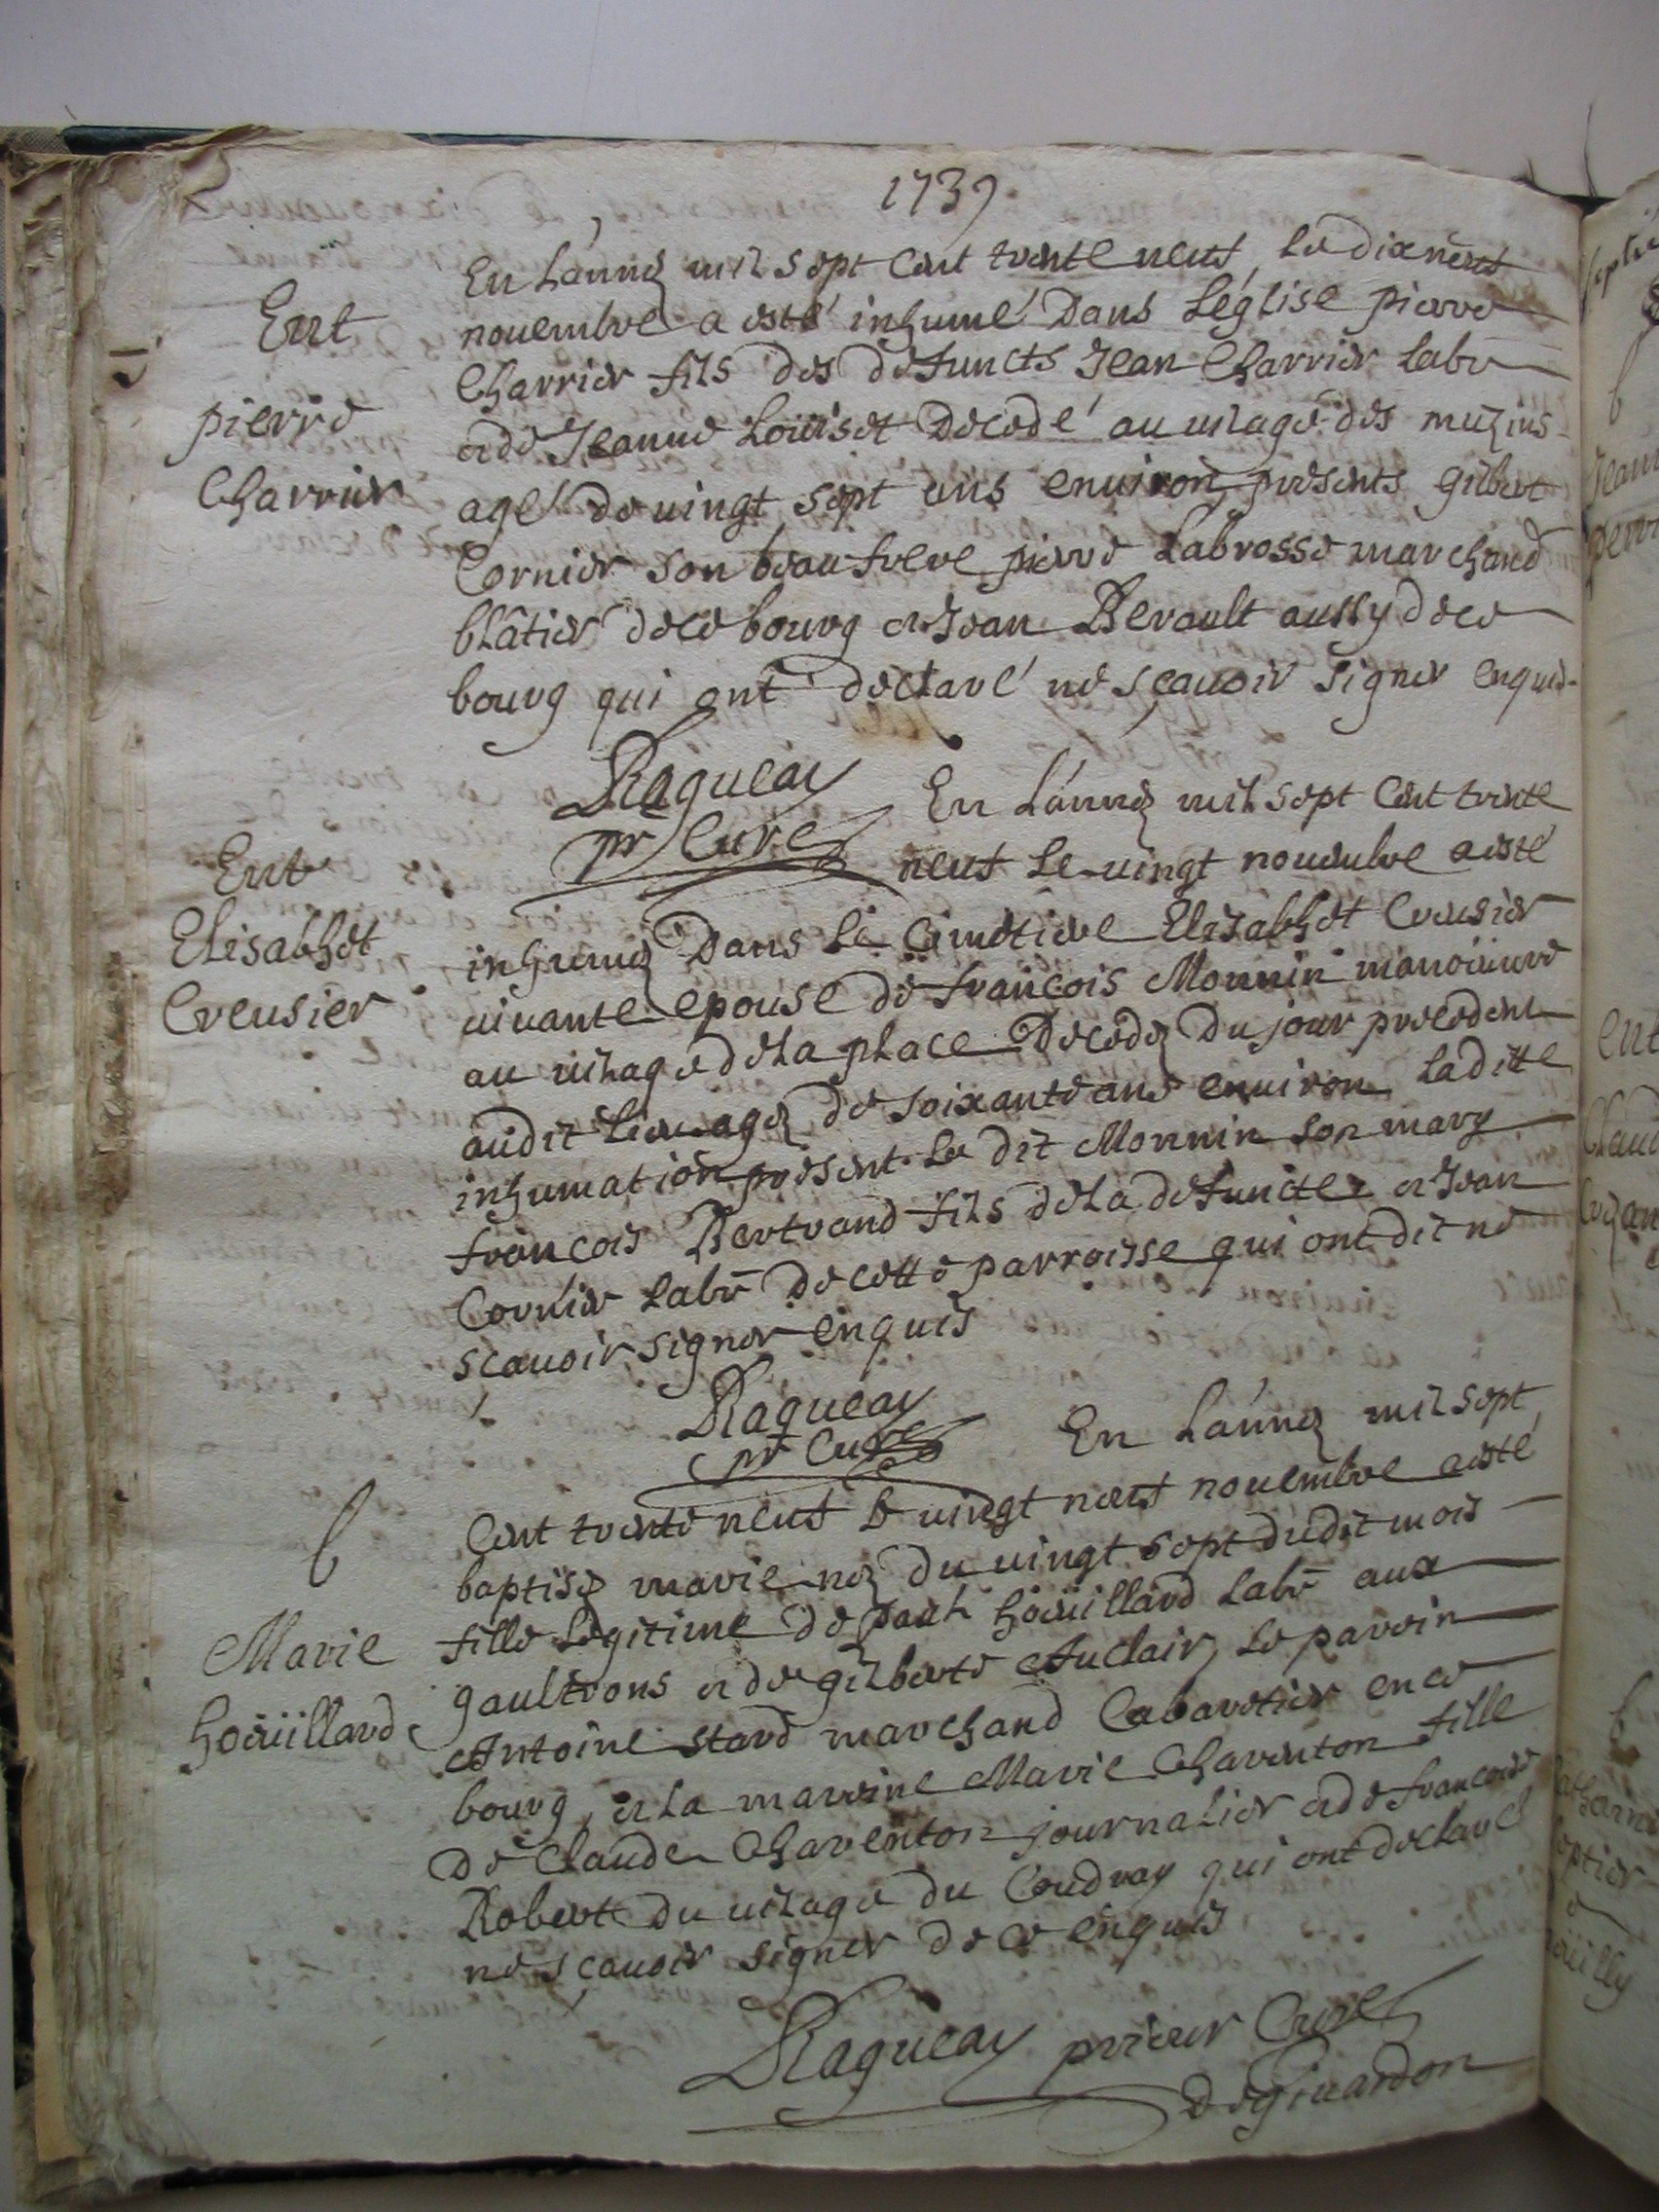 1739
En L'année mil sept cent trente neuf, Le dix neuf
Ent
novembre a esté inhumé Dans L'église pierre
Charrier fils des defuncts Jean Charrier Labr
pierre
et de Jeanne Loüiset Decedé au vilage des muzins
Charrier
agé de vingt sept ans environ, presents gilbert
Cornier son beau frere pierre Labrosse marchand
blâtier de ce bourg et Jean Berault aussy de ce
bourg qui ont declaré ne sçavoir signer enquis
Ragueau
pr Curé
En L'année mil sept Cent trente
neuf Le vingt novembre a esté
Ent
Elisabhet
Creusier
inhumée Dans Le Cimetiere Elisabhet Creusier
vivante epouse de françois Monnin manoüuvre
au vilage de La place Decedée Du jour precedent
audit Lieu agée de soixante ans environ Laditte
inhumation present Le dit Monnin son mary
françois Bertrand fils de La defuncte et Jean
Cornier Labr De cette parroisse qui ont dit ne
scavoir signer enquis
Ragueau
pr Curé
En L'année mil sept
Cent trente neuf Le vingt neuf novembre a esté
b
baptisée marie née Du vingt sept dudit mois
fille Legitime de paul hoüillard Labr aux
Marie
hoüillard
gaultrons et de gilberte Auclair, Le parrin
Antoine stard marchand Cabaretier en ce
bourg, et La marrine Marie Charenton fille
De Claude Charenton journalier et de francoise
Robert Du vilage du Coudray qui ont declaré
ne sçavoir signer De ce enquis
Ragueau prieur Curé